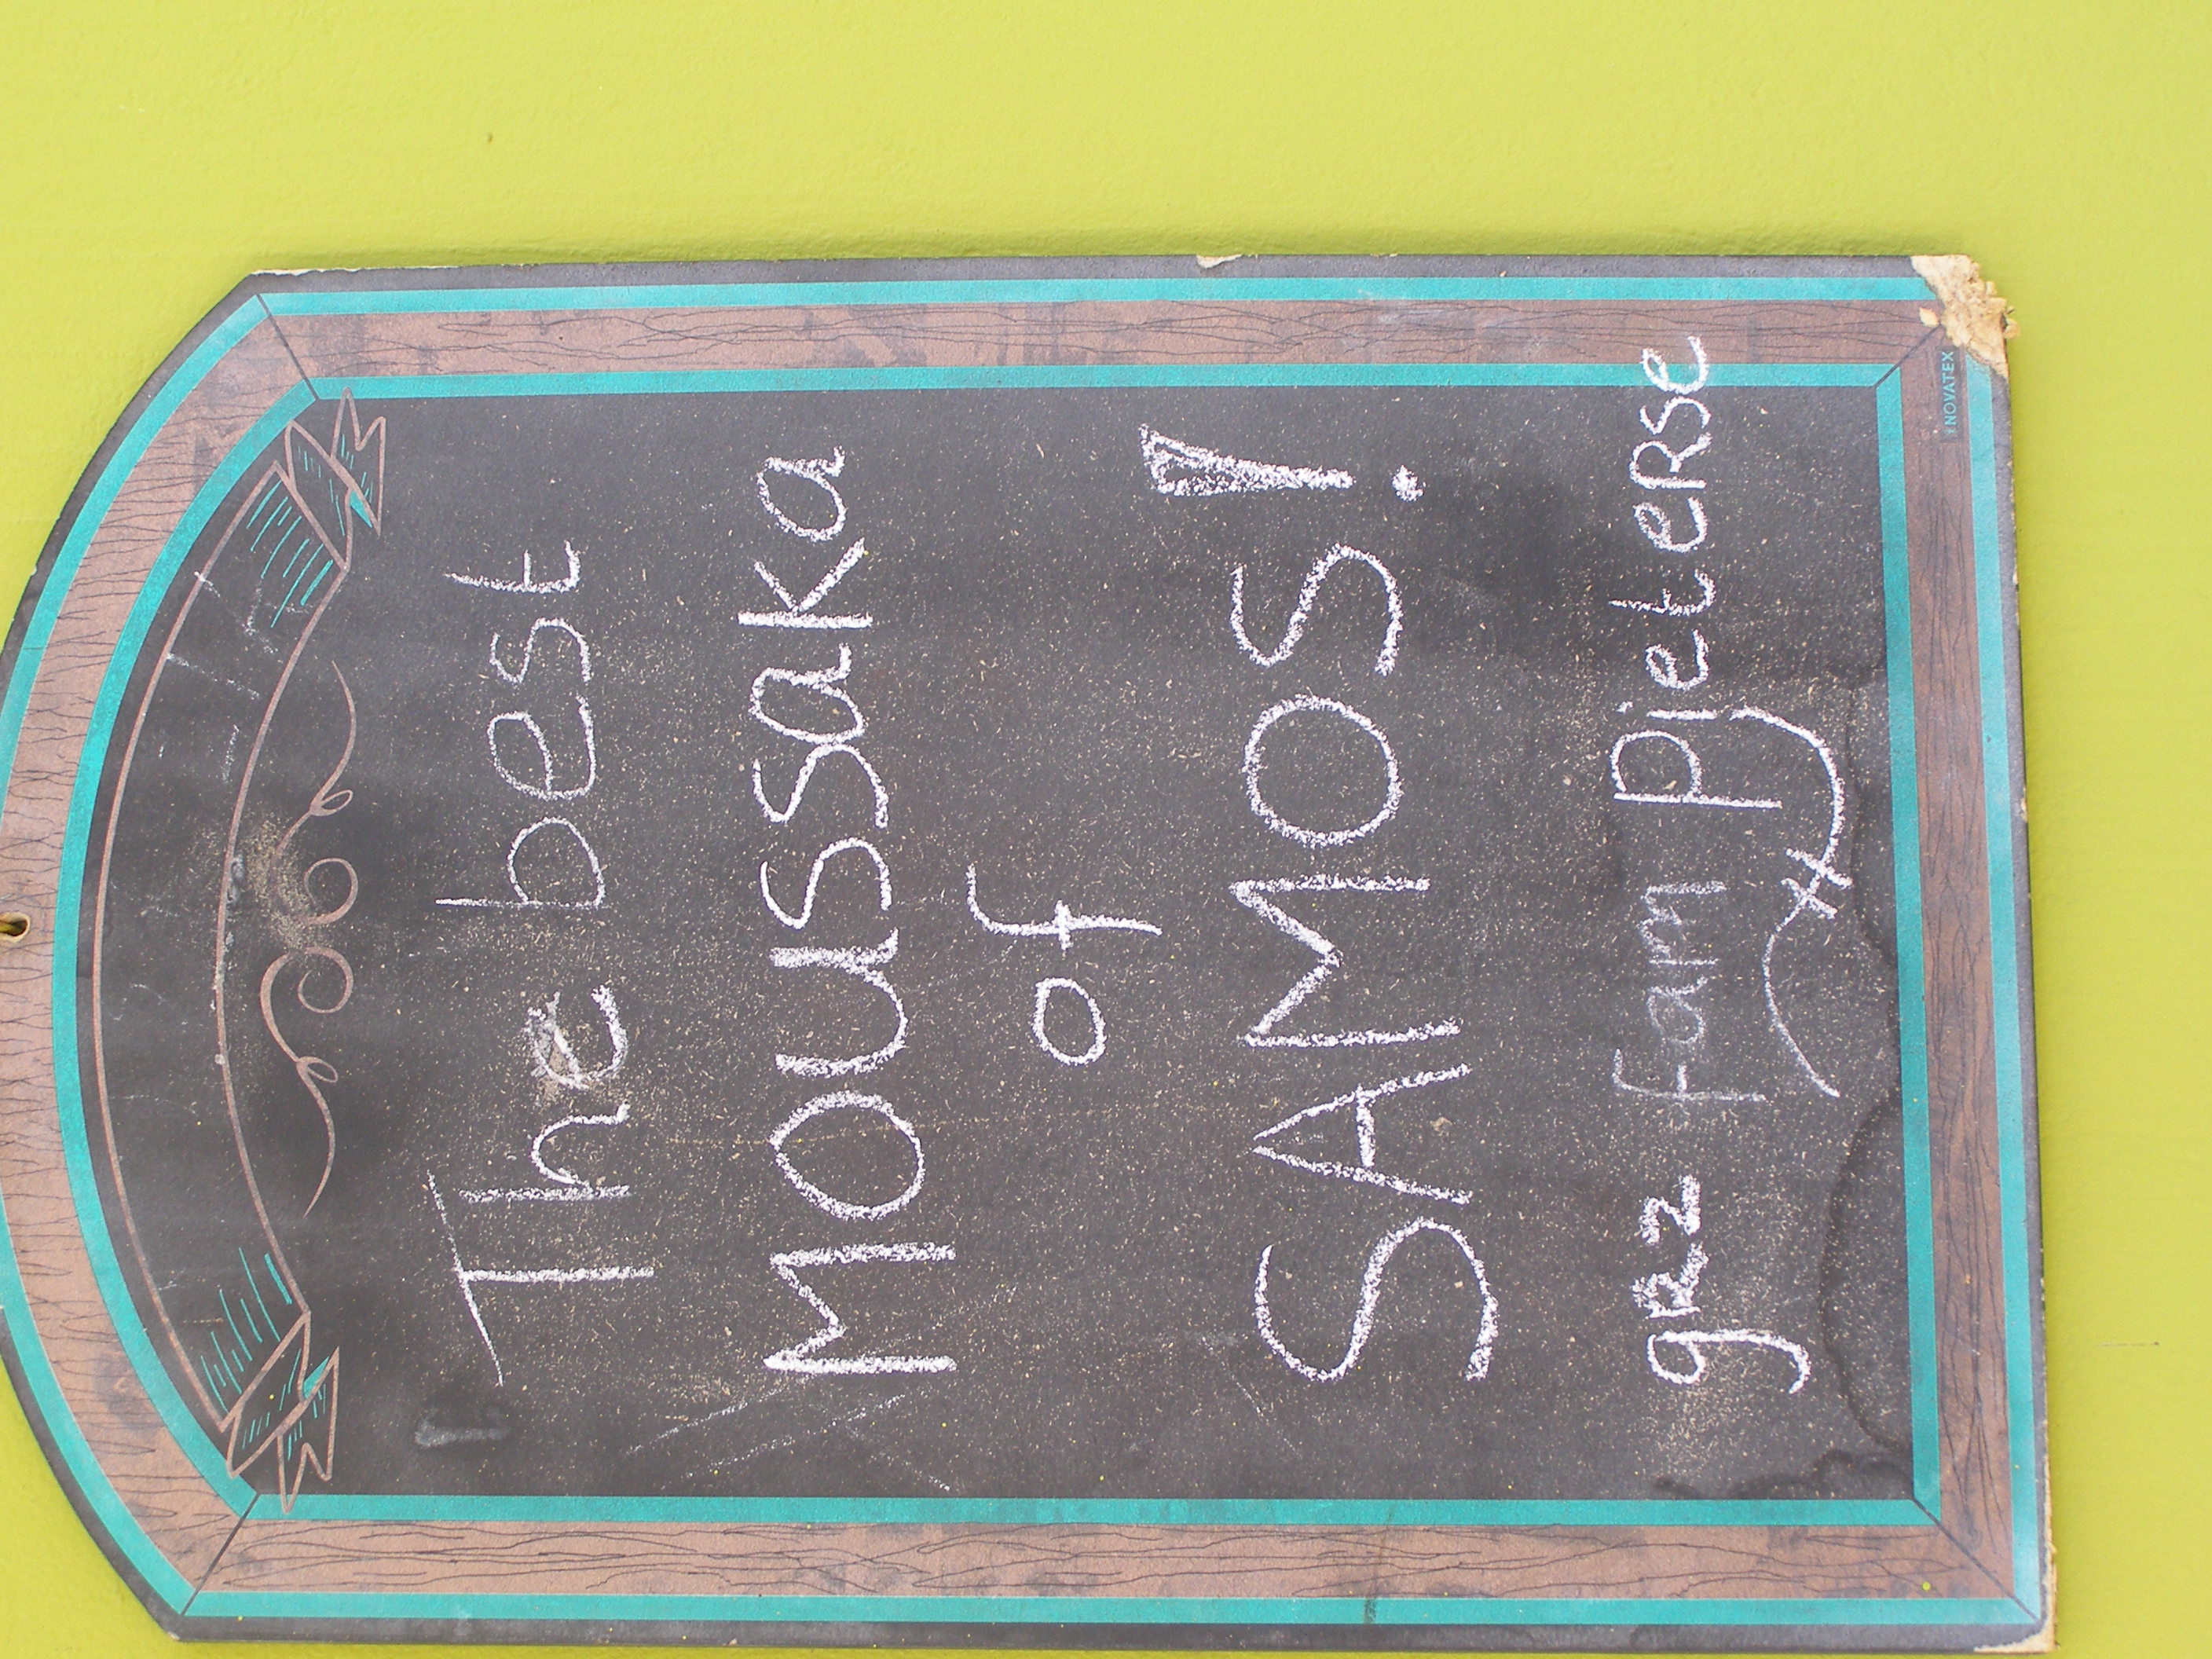 The best
Moussaka
of
SAMOS!
grz fam Pieterse
NOVATEX